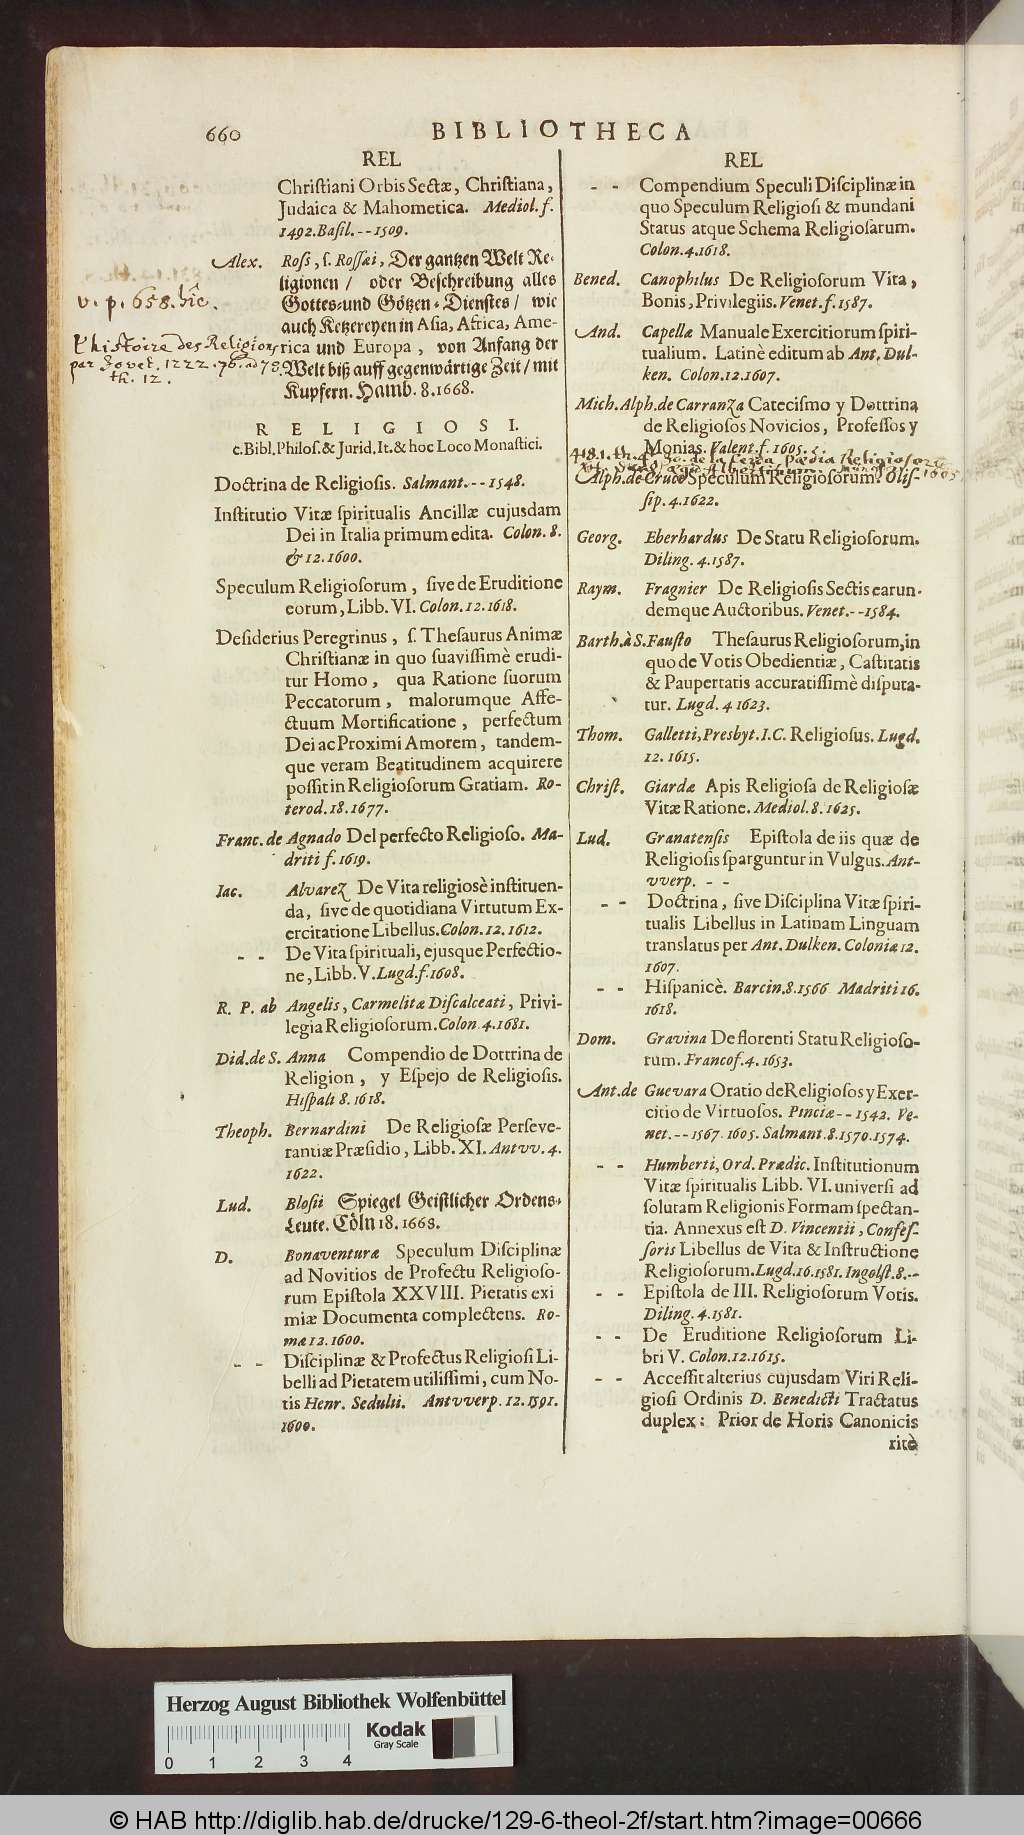 660
BIBLIOTHECA
REL
Chriſtiani Orbis Sectæ, Chriſtiana,
Judaica & Mahometica. Mediol. f.
1492. Baſil. -- 1509.
Alex. Roſſ, ſ. Roſſæi, Der gantzen Welt Re-
ligionen / oder Beſchreibung alles
Gottes- und Götzen-Dienſtes / wie
auch Ketzereyen in Aſia, Africa, Ame-
rica und Europa, von Anfang der
Welt biß auff gegenwärtige Zeit / mit
Kupfern. Hamb. 8. 1668.
v. p. 658. hîc.
l'histoire des Religions
par Jovet. 1222. 76. ad 78.
th. 12.
RELIGIOSI.
c. Bibl. Philoſ. & Jurid. It. & hoc Loco Monaſtici.
Doctrina de Religioſis. Salmant. -- 1548.
Inſtitutio Vitæ ſpiritualis Ancillæ cujusdam
Dei in Italia primum edita. Colon. 8.
& 12. 1600.
Speculum Religioſorum, ſive de Eruditione
eorum, Libb. VI. Colon. 12. 1618.
Deſiderius Peregrinus, ſ. Theſaurus Animæ
Chriſtianæ in quo ſuaviſſimè erudi-
tur Homo, qua Ratione ſuorum
Peccatorum, malorumque Affe-
ctuum Mortificatione, perfectum
Dei ac Proximi Amorem, tandem-
que veram Beatitudinem acquirere
poſſit in Religioſorum Gratiam. Ro-
terod. 18. 1677.
Franc. de Agnado Del perfecto Religioſo. Ma-
driti f. 1619.
Iac. Alvarez De Vita religiosè inſtituen-
da, ſive de quotidiana Virtutum Ex-
ercitatione Libellus. Colon. 12. 1612.
- - De Vita ſpirituali, ejusque Perfectio-
ne, Libb. V. Lugd. f. 1608.
R. P. ab Angelis, Carmelitæ Diſcalceati, Privi-
legia Religioſorum. Colon 4. 1681.
Did. de S. Anna Compendio de Dottrina de
Religion, y Eſpejo de Religioſis.
Hiſpali 8. 1618.
Theoph. Bernardini De Religioſæ Perſeve-
rantiæ Præſidio, Libb. XI. Antvv. 4.
1622.
Lud. Bloſii Spiegel Geiſtlicher Ordens-
Leute. Cöln 18. 1668.
D. Bonaventuræ Speculum Diſciplinæ
ad Novitios de Profectu Religioſo-
rum Epiſtola XXVIII. Pietatis exi
miæ Documenta complectens. Ro-
mæ 12. 1600.
- - Diſciplinæ & Profectus Religioſi Li-
belli ad Pietatem utiliſſimi, cum No-
tis Henr. Sedulii. Antvverp. 12. 1591.
1600.
REL
- - Compendium Speculi Diſciplinæ in
quo Speculum Religioſi & mundani
Status atque Schema Religioſarum.
Colon. 4. 1618.
Bened. Canophilus De Religioſorum Vita,
Bonis, Privilegiis. Venet. f. 1587.
And. Capellæ Manuale Exercitiorum ſpiri-
tualium. Latinè editum ab Ant. Dul-
ken. Colon. 12. 1607.
Mich. Alph. de Carranza Catecismo y Dottrina
de Religioſos Novicios, Profeſſos y
Monias. Valent. f. 1605.
418. 1. th. 4. Jo. de la Cerda Pædia Religiosorum
1605
Alph. de Cruce Speculum Religioſorum. Oliſ-
ſip. 4. 1622.
Georg. Eberhardus De Statu Religioſorum.
Diling. 4. 1587.
Raym. Fragnier De Religioſis Sectis earun-
demque Auctoribus. Venet. -- 1584.
Barth. à S. Fauſto Theſaurus Religioſorum, in
quo de Votis Obedientiæ, Caſtitatis
& Paupertatis accuratiſſimè diſputa-
tur. Lugd. 4 1623.
Thom. Galletti, Presbyt. I. C. Religioſus. Lugd.
12. 1615.
Chriſt. Giardæ Apis Religioſa de Religioſæ
Vitæ Ratione. Mediol. 8. 1625.
Lud. Granatenſis Epiſtola de iis quæ de
Religioſis ſparguntur in Vulgus. Ant-
vverp. - -
- - Doctrina, ſive Diſciplina Vitæ ſpiri-
tualis Libellus in Latinam Linguam
translatus per Ant. Dulken. Coloniæ 12.
1607.
- - Hiſpanicè. Barcin. 8. 1566 Madriti 16.
1618.
Dom. Gravina De florenti Statu Religioſo-
rum. Francof. 4. 1653.
Ant. de Guevara Oratio de Religioſos y Exer-
citio de Virtuoſos. Pinciæ -- 1542. Ve-
net. -- 1567. 1605. Salmant. 8. 1570. 1574.
- - Humberti, Ord. Prædic. Inſtitutionum
Vitæ ſpiritualis Libb. VI. univerſi ad
ſolutam Religionis Formam ſpectan-
tia. Annexus eſt D. Vincentii, Confeſ-
ſoris Libellus de Vita & Inſtructione
Religioſorum. Lugd. 16. 1581. Ingolſt. 8. --
- - Epiſtola de III. Religioſorum Votis.
Diling. 4. 1581.
- - De Eruditione Religioſorum Li-
bri V. Colon. 12. 1615.
- - Acceſſit alterius cujusdam Viri Reli-
gioſi Ordinis D. Benedicti Tractatus
duplex: Prior de Horis Canonicis
ritè
Herzog August Bibliothek Wolfenbüttel
0 1 2 3 4
Kodak
Gray Scale
© HAB http://diglib.hab.de/drucke/129-6-theol-2f/start.htm?image=00666